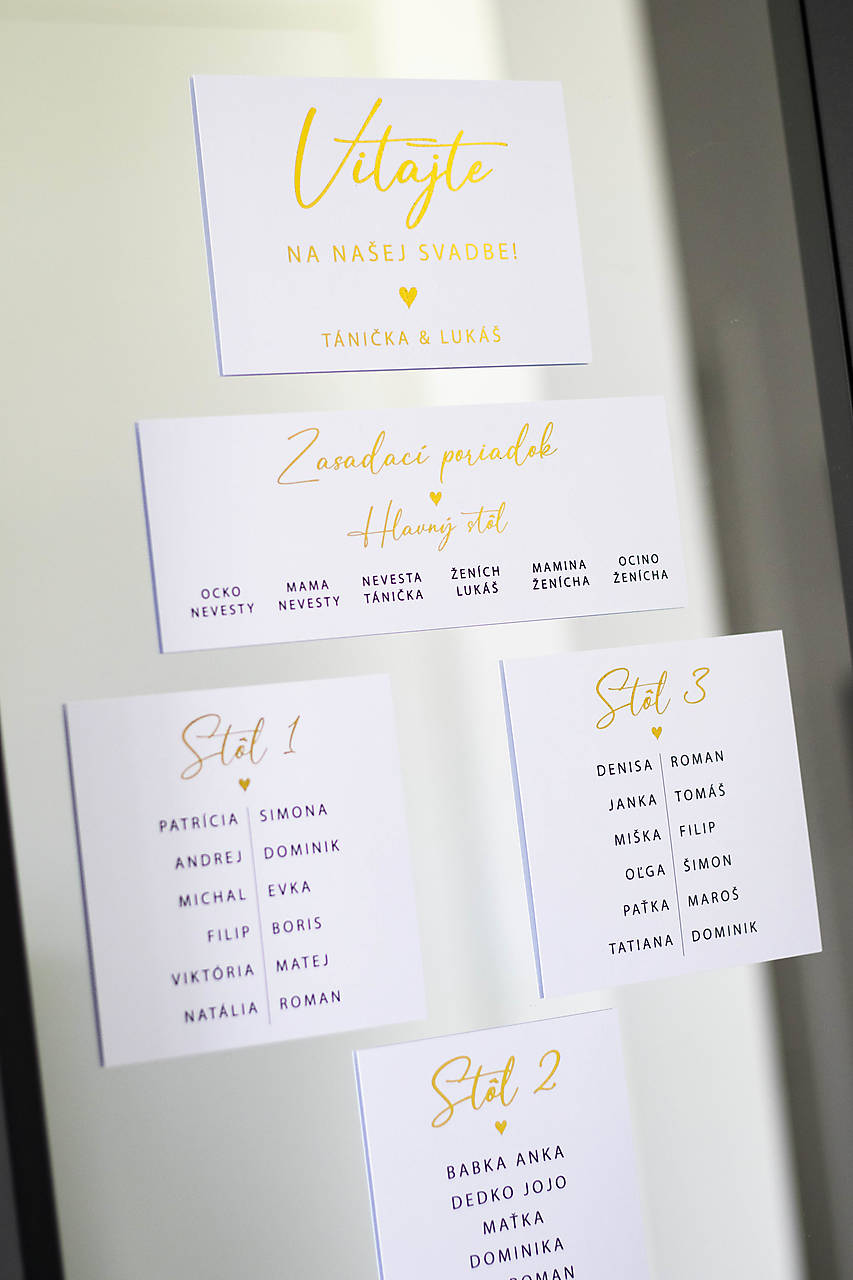 Vitajte
NA NAŠEJ SVADBE!
TÁNIČKA & LUKÁŠ
Zasadací poriadok
Hlavný stôl
OCKO NEVESTY
MAMA NEVESTY
NEVESTA TÁNIČKA
ŽENÍCH LUKÁŠ
MAMINA ŽENÍCHA
OCINO ŽENÍCHA
Stôl 1
PATRÍCIA SIMONA
ANDREJ DOMINIK
MICHAL EVKA
FILIP BORIS
VIKTÓRIA MATEJ
NATÁLIA ROMAN
Stôl 3
DENISA ROMAN
JANKA TOMÁŠ
MIŠKA FILIP
OĽGA ŠIMON
PAŤKA MAROŠ
TATIANA DOMINIK
Stôl 2
BABKA ANKA
DEDKO JOJO
MAŤKA
DOMINIKA
ROMAN